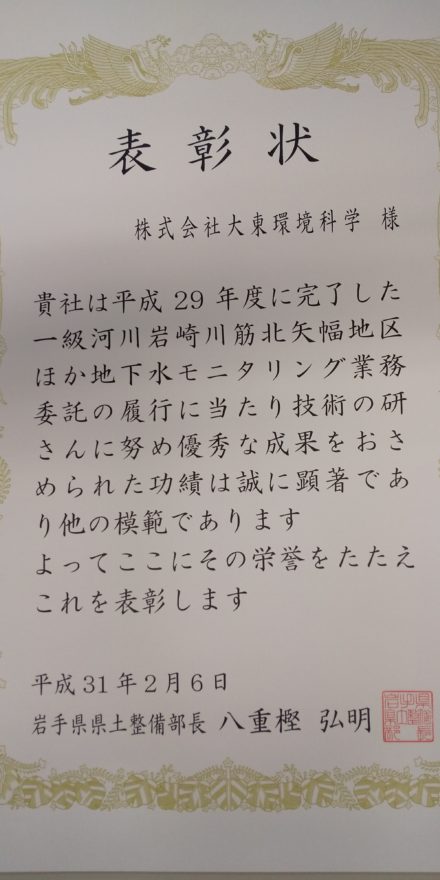 表彰状
株式会社大東環境科学 様
貴社は平成 29 年度に完了した
一級河川岩崎川筋北矢幅地区
ほか地下水モニタリング業務
委託の履行に当たり技術の研
さんに努め優秀な成果をおさ
められた功績は誠に顕著であ
り他の模範であります
よってここにその栄誉をたたえ
これを表彰します
平成 31 年 2 月 6 日
岩手県県土整備部長 八重樫 弘明